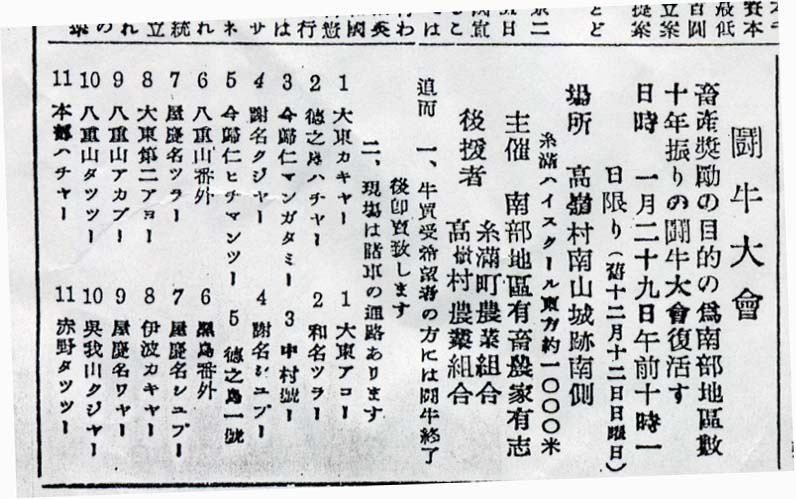 闘牛大會
畜産奬勵の目的の爲南部地區數
十年振りの闘牛大會復活す
日時　一月二十九日午前十時一
日限り（舊十二月十二日日曜日）
場所　高嶺村南山城跡南側
糸滿ハイスクール東方約一〇〇〇米
主催　南部地區有畜農家有志
後援者　糸滿町農業組合
高嶺村農業組合
追而　一、牛買受希望者の方には闘牛終了
後卽賣致します
二、現場は諸車の通路あります
1　大東カキヤー　1　大東アコー
2　徳之島ハチヤー　2　和名ツラー
3　今歸仁マンガタミー　3　中村號ー
4　謝名クジヤー　4　謝名シユブー
5　今歸仁ヒチマンツー　5　徳之島一號
6　八重山番外　6　黒島番外
7　屋慶名ツラー　7　屋慶名シユブー
8　大東第二アヨー　8　伊波カキヤー
9　八重山アカブー　9　屋慶名ワヤー
10　八重山タツツー　10　呉我山クジヤー
11　本部ハチヤー　11　赤野タツツー